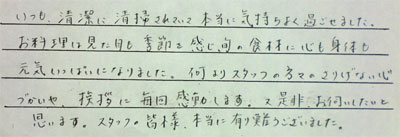 いつも、清潔に清掃されていて本当に気持ちよく過ごせました。
お料理は見た目も季節を感じ、旬の食材に心も身体も
元気いっぱいになりました。何よりスタッフの方々のさりげない心
づかいや、挨拶に毎回感動します。又是非、お伺いしたいと
思います。スタッフの皆様、本当に有り難うございました。